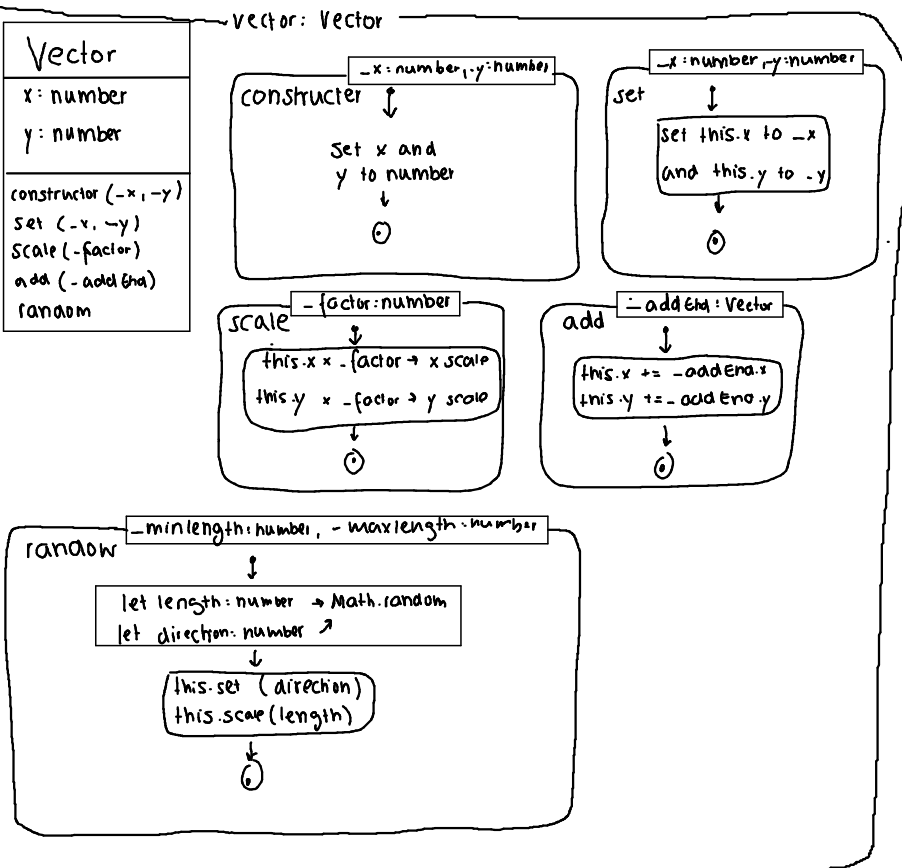 vector: Vector
Vector
x: number
y: number
constructor (_x, _y)
set (_x, _y)
scale (_factor)
add (_addEnd)
random
_x: number, _y: number
constructer
set x and
y to number
_x: number, _y: number
set
set this.x to _x
and this.y to _y
_factor: number
scale
this.x × _factor → x scale
this.y × _factor → y scale
_addEnd: Vector
add
this.x += _addEnd.x
this.y += _addEnd.y
_minlength: number, _maxlength: number
random
let length: number → Math.random
let direction: number ↗
this.set (direction)
this.scale (length)